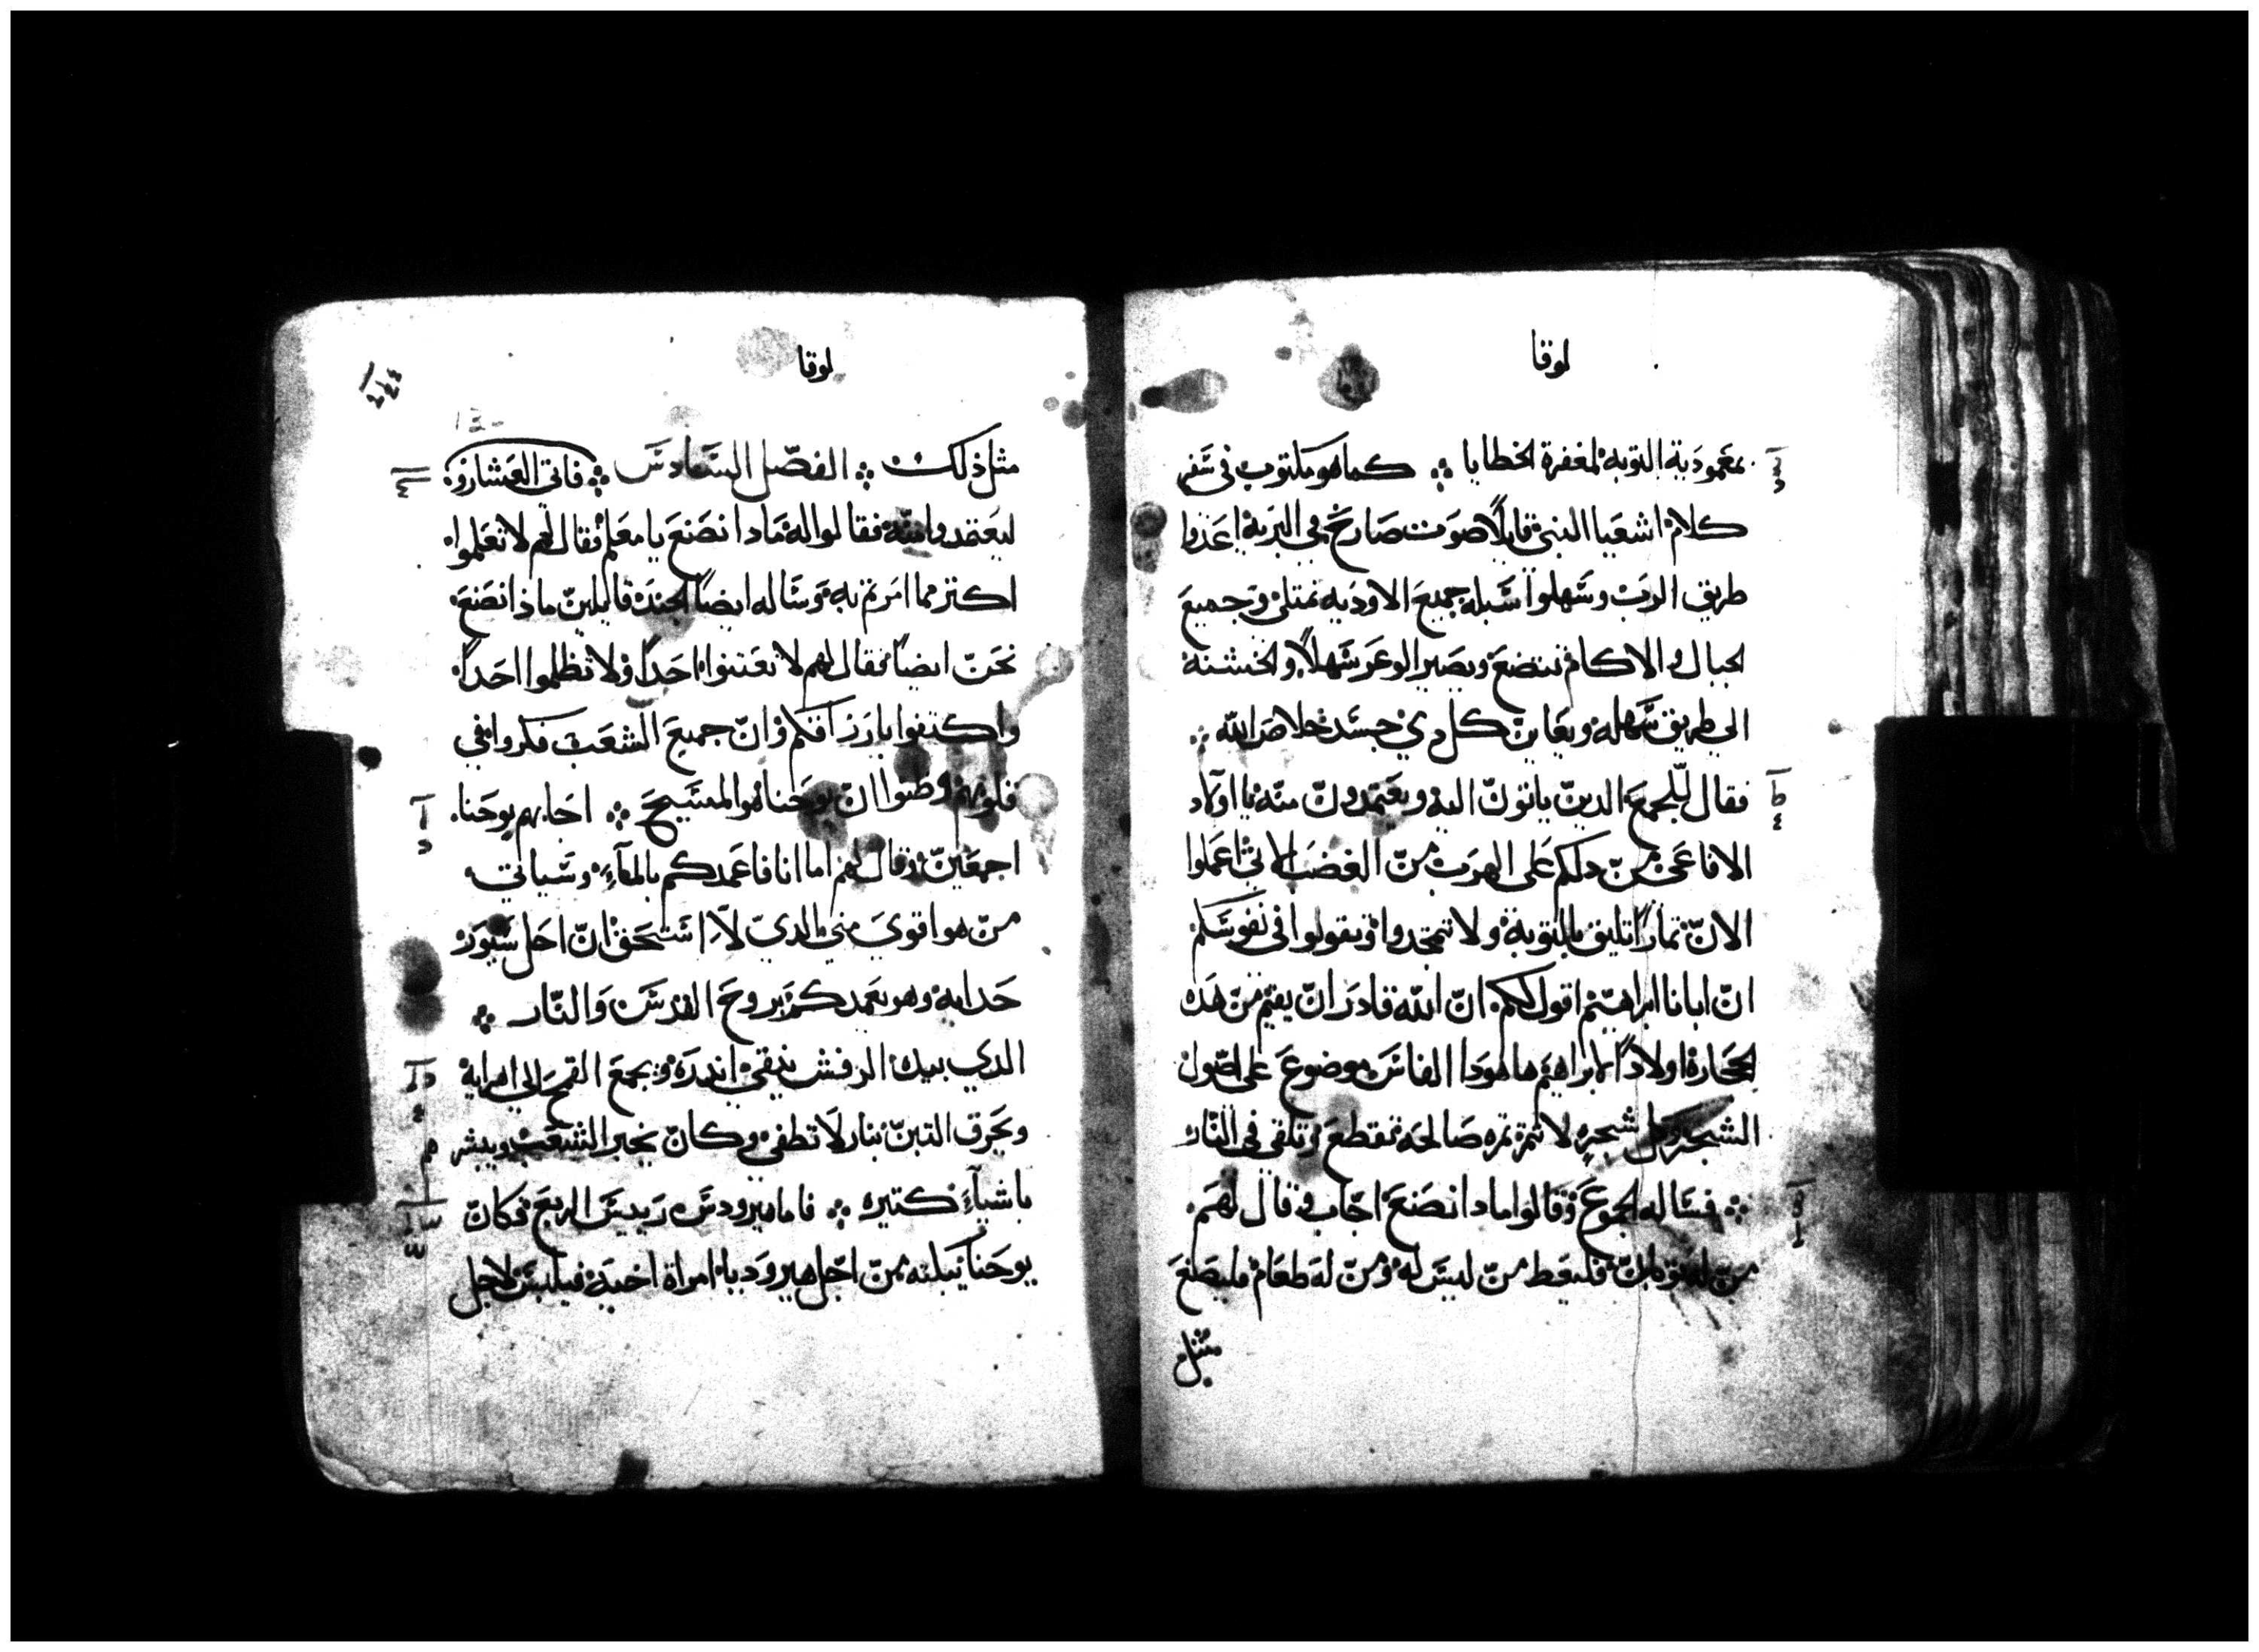 لوقا
بمعمودية التوبه لمغفرة الخطايا ⁘ كما هو مكتوب في سفر
كلام اشعيا النبي قايلاً صوت صارخ في البرية اعدوا
طريق الرب وسهلوا سبله جميع الاوديه تمتلي وجميع
الجبال والاكام تتضع ويصير الوعر سهلاً والخشنه
الي طريق سهله ويعاين كل دي جسد خلاص الله
فقال للجمع الدين ياتون اليه ويعتمدون منه يا اولاد
الافاعي من دلكم على الهرب من الغضب الاتي اعملوا
الان تماراً تليق بالتوبة ولا تبتدوا وتقولوا في نفوسكم
ان ابانا ابراهيم اقول لكم ان الله قادر ان يقيم من هده
الحجارة اولاداً لابراهيم ها هودا الفاس موضوع على اصول
الشجر وكل شجره لا تثمر تمره صالحه تقطع وتلقي في النار
⁘ فساله الجموع وقالوا مادا نصنع اجاب وقال لهم
من له توبان فليعط من ليس له ومن له طعام فليصنع
مثل
لوقا
مثل ذلك ⁘ الفصل السادس ⁘ فاتي العشارون
ليعتمدوا منه فقالوا له مادا نصنع يا معلم فقال لهم لا تعملوا
اكتر مما امرتم به وساله ايضاً الجند قايلين ماذا نصنع
نحن ايضاً فقال لهم لا تعنتوا احداً ولا تظلموا احداً
واكتفوا بارزاقكم وان جميع الشعب فكروا في
قلوبهم وظنوا ان يوحنا هو المسيح ⁘ اجابهم يوحنا
اجمعين وقال لهم اما انا فاعمدكم بالماء وسياتي
من هو اقوي مني الدي لا استحق ان احل سيور
حدايه وهو يعمدكم بروح القدس والنار ⁘
الدي بيده الرفش ينقي اندره ويجمع القمح الي اهرايه
ويحرق التبن بنار لا تطفي وكان يخبر الشعب ويبشر
باشياء كتيره ⁘ فاما هيرودس رييس الربع فكان
يوحنا يبكته من اجل هيروديا امراة اخيه فيلبس ولاجل